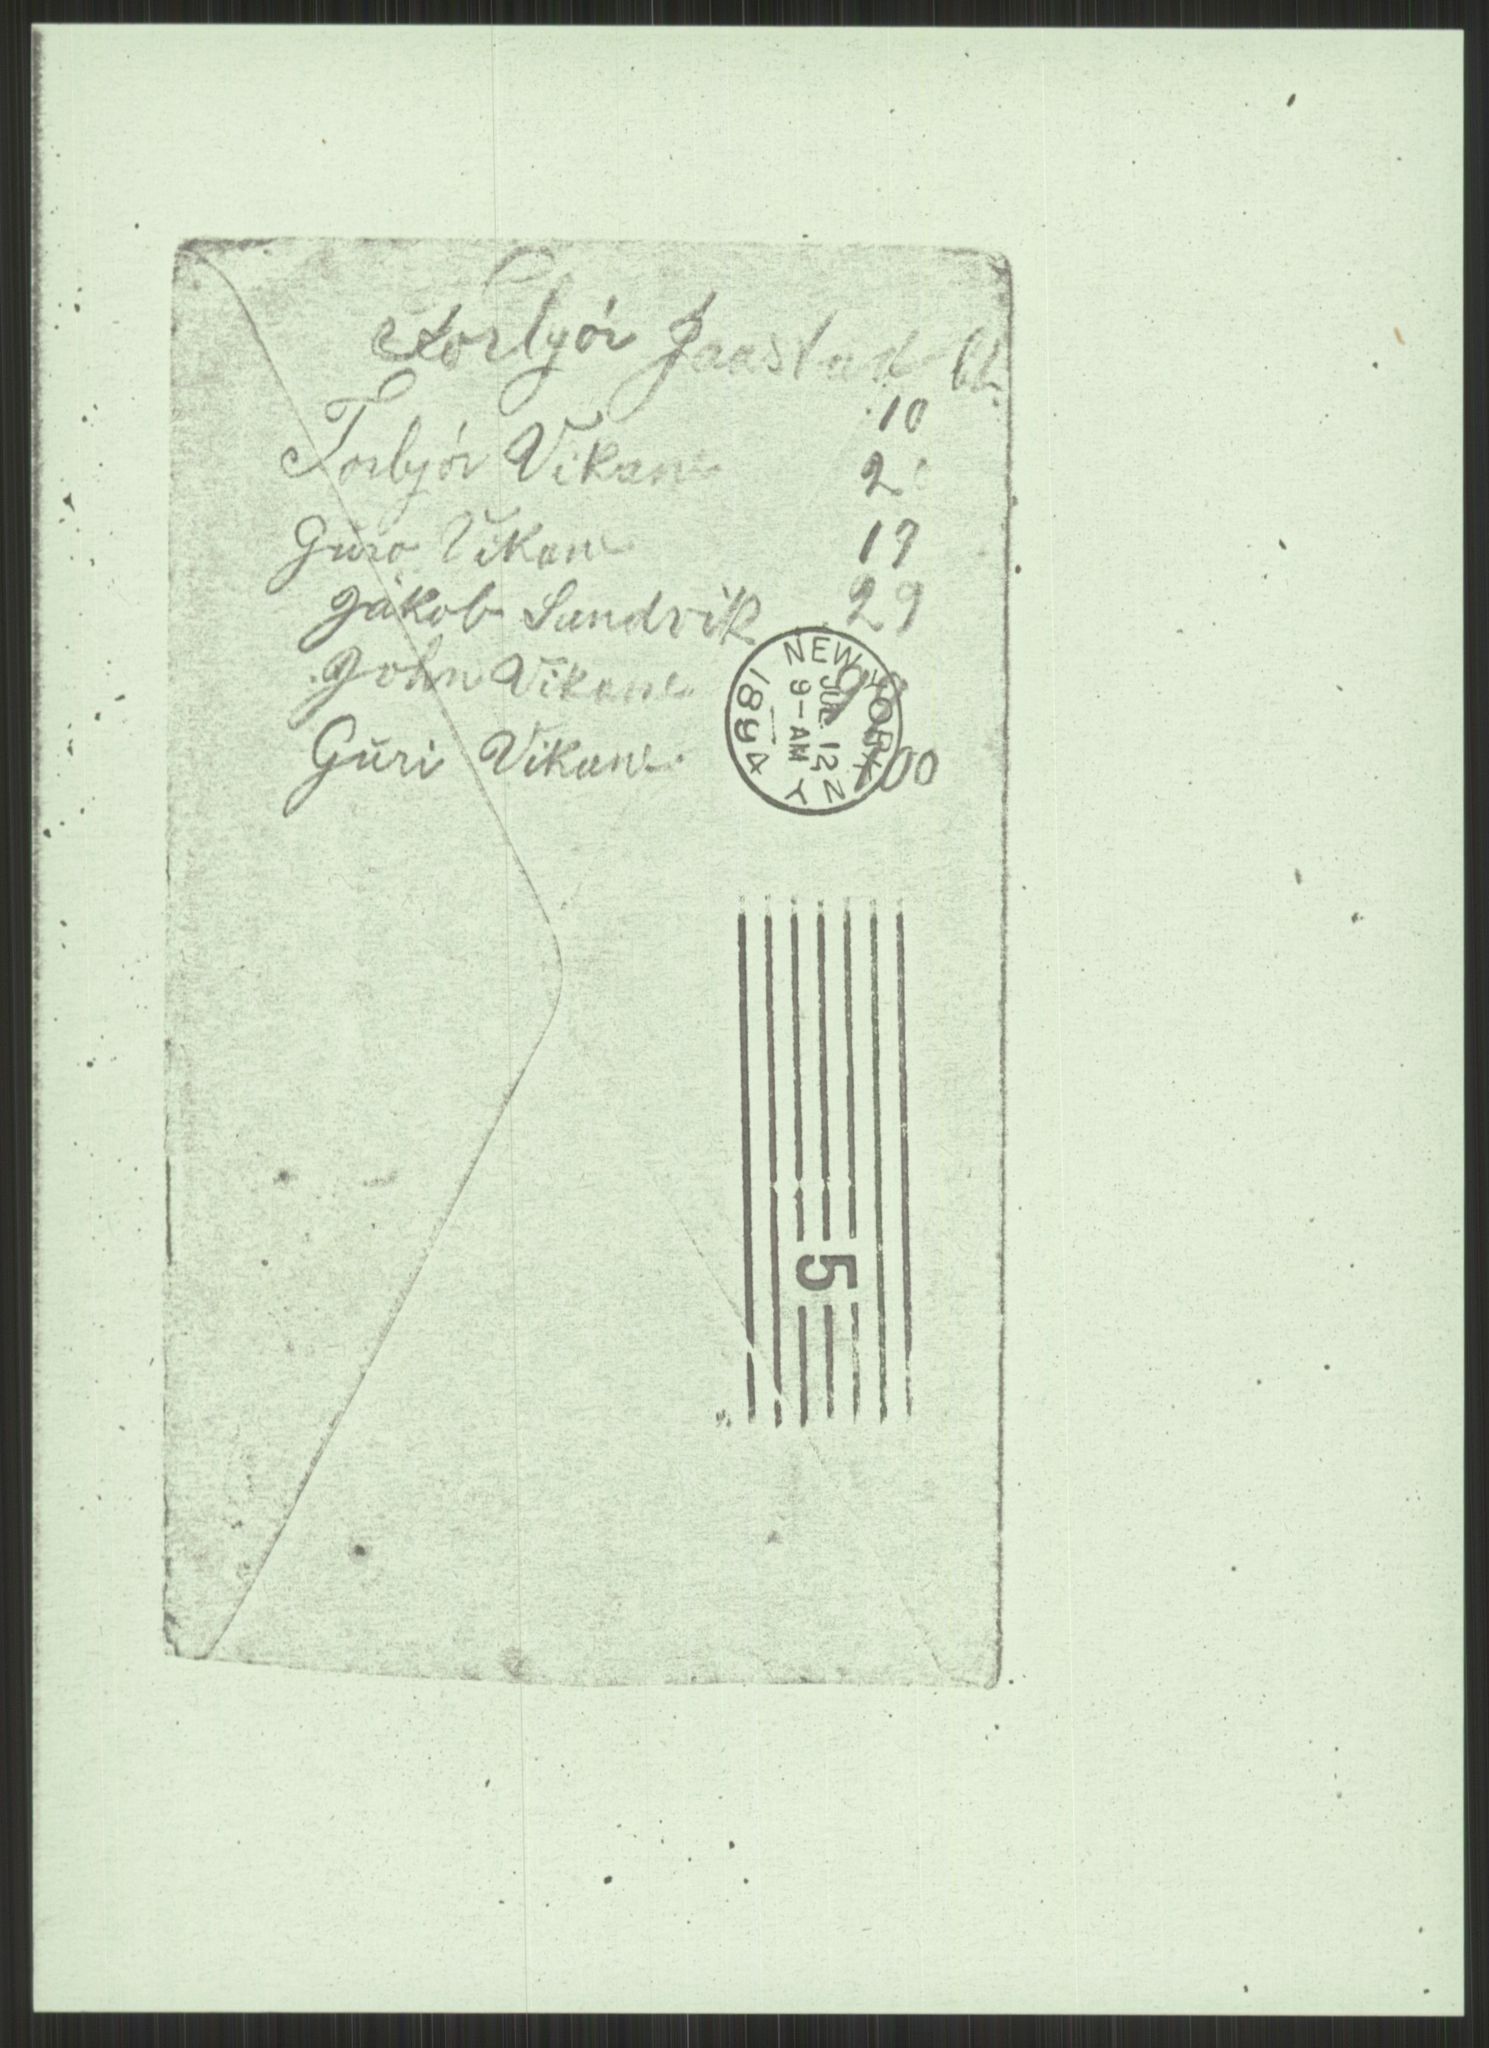 Torbjór Jaastad
10
Torbjór Vikane 2
Guro Vikane 19
Jakob Sandvik 29
John Vikane
Guri Vikane 100
NEW YORK N Y
JUL 12
9-AM
1894
5